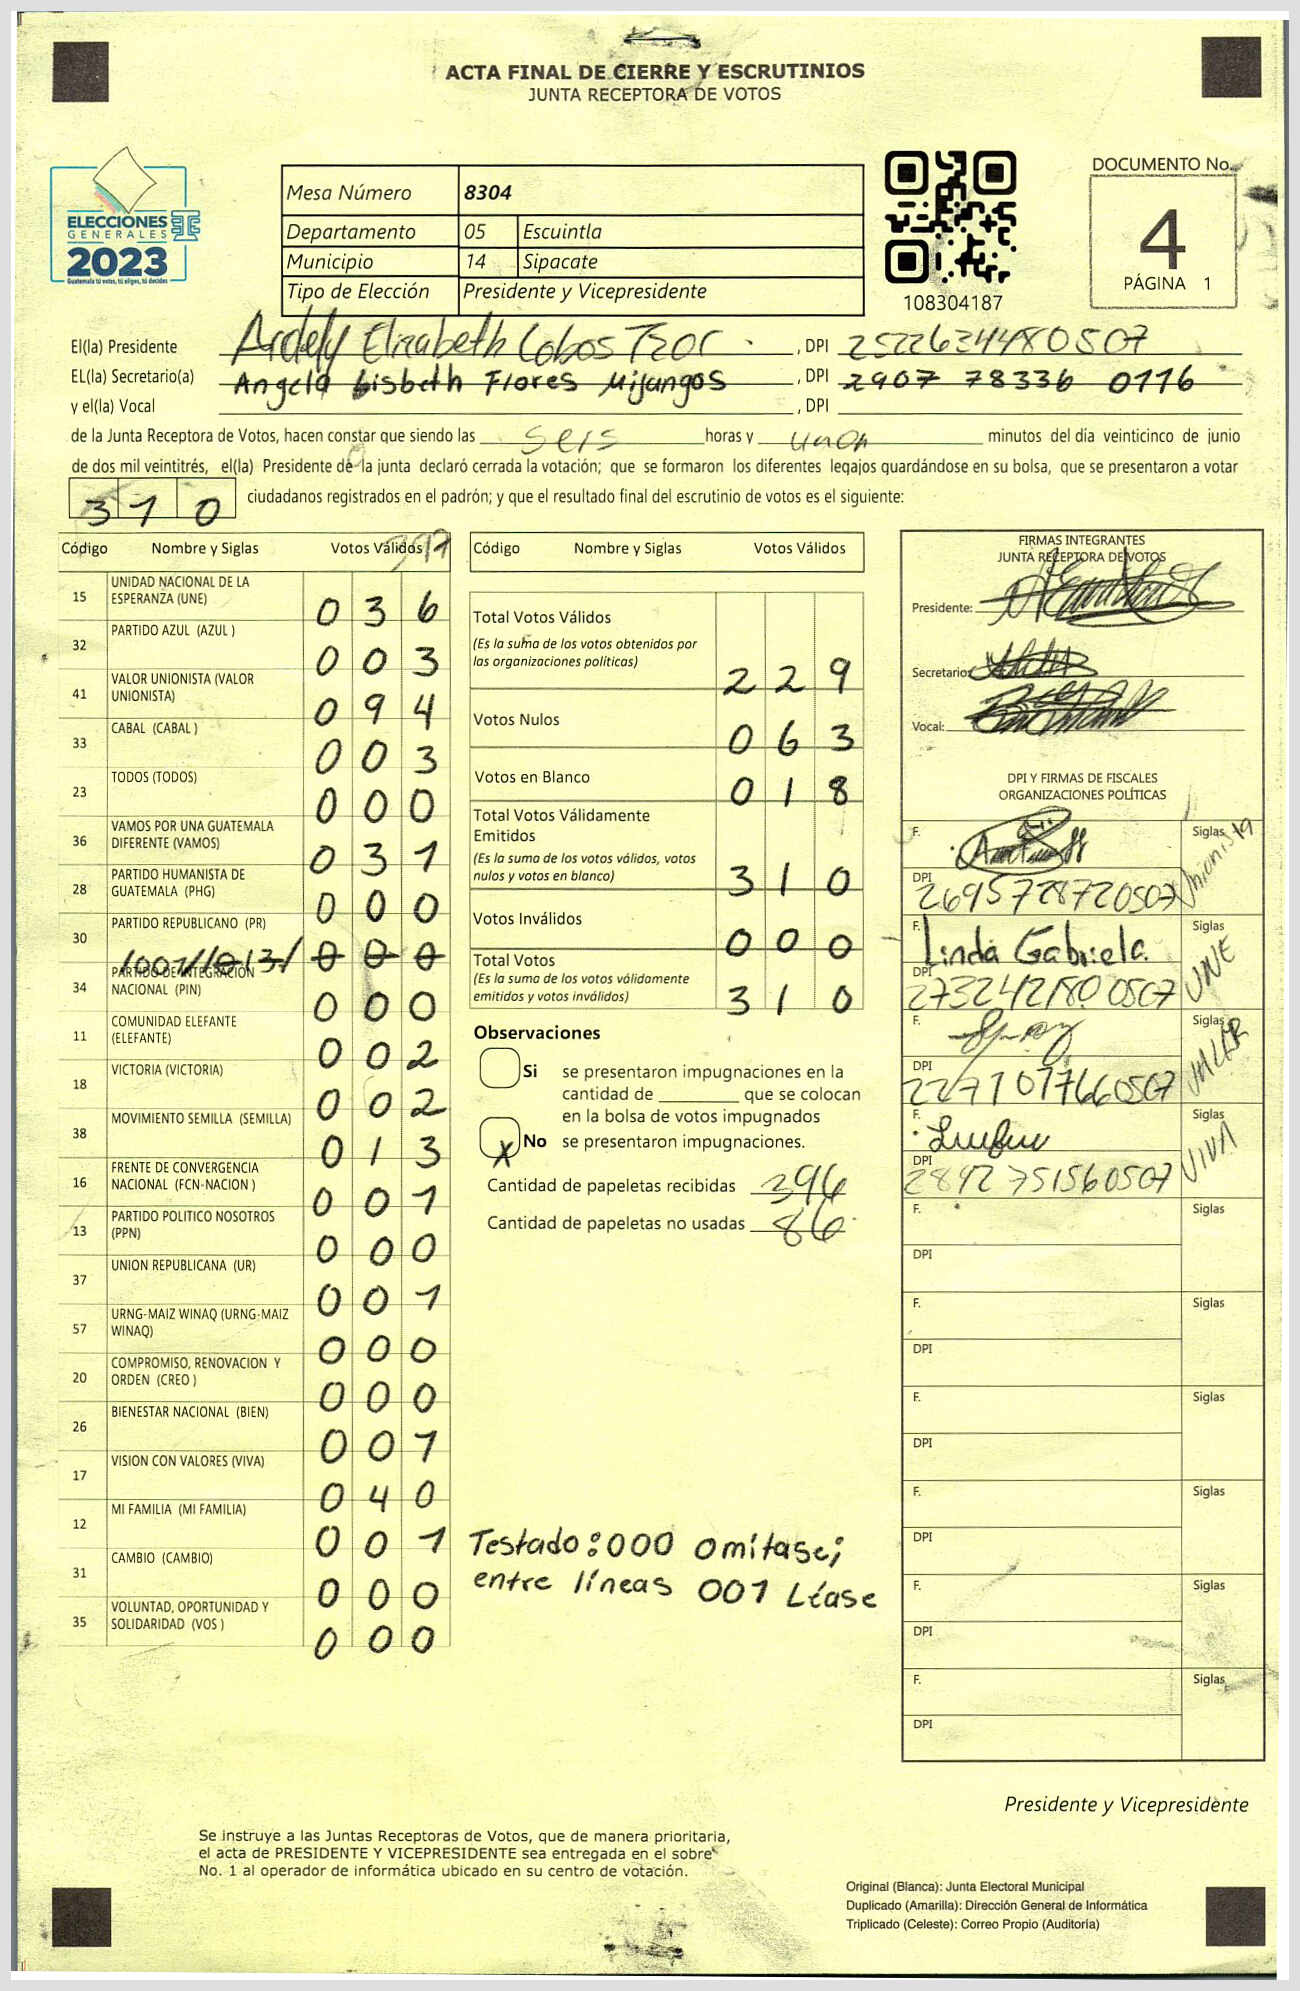 ACTA FINAL DE CIERRE Y ESCRUTINIOS
JUNTA RECEPTORA DE VOTOS
ELECCIONES
GENERALES
2023
Guatemala tú votas, tú eliges, tú decides
Mesa Número 8304
Departamento 05 Escuintla
Municipio 14 Sipacate
Tipo de Elección Presidente y Vicepresidente
108304187
DOCUMENTO No.
4
PÁGINA 1
El(la) Presidente Ardely Elizabeth Cobos Tzoc , DPI 2522634480507
EL(la) Secretario(a) Angela Lisbeth Flores Mijangos , DPI 2907 78336 0116
y el(la) Vocal , DPI
de la Junta Receptora de Votos, hacen constar que siendo las seis horas y minutos del día veinticinco de junio
de dos mil veintitrés, el(la) Presidente de la junta declaró cerrada la votación; que se formaron los diferentes legajos guardándose en su bolsa, que se presentaron a votar
310 ciudadanos registrados en el padrón; y que el resultado final del escrutinio de votos es el siguiente:
Código Nombre y Siglas Votos Válidos
15 UNIDAD NACIONAL DE LA ESPERANZA (UNE) 036
32 PARTIDO AZUL (AZUL ) 003
41 VALOR UNIONISTA (VALOR UNIONISTA) 094
33 CABAL (CABAL ) 003
23 TODOS (TODOS) 000
36 VAMOS POR UNA GUATEMALA DIFERENTE (VAMOS) 031
28 PARTIDO HUMANISTA DE GUATEMALA (PHG) 000
30 PARTIDO REPUBLICANO (PR) 000
34 PARTIDO DE INTEGRACION NACIONAL (PIN) 000
11 COMUNIDAD ELEFANTE (ELEFANTE) 002
18 VICTORIA (VICTORIA) 002
38 MOVIMIENTO SEMILLA (SEMILLA) 013
16 FRENTE DE CONVERGENCIA NACIONAL (FCN-NACION ) 001
13 PARTIDO POLITICO NOSOTROS (PPN) 000
37 UNION REPUBLICANA (UR) 001
57 URNG-MAIZ WINAQ (URNG-MAIZ WINAQ) 000
20 COMPROMISO, RENOVACION Y ORDEN (CREO ) 000
26 BIENESTAR NACIONAL (BIEN) 001
17 VISION CON VALORES (VIVA) 040
12 MI FAMILIA (MI FAMILIA) 001
31 CAMBIO (CAMBIO) 000
35 VOLUNTAD, OPORTUNIDAD Y SOLIDARIDAD (VOS ) 000
Código Nombre y Siglas Votos Válidos
Total Votos Válidos 229
(Es la suma de los votos obtenidos por
las organizaciones políticas)
Votos Nulos 063
Votos en Blanco 018
Total Votos Válidamente
Emitidos 310
(Es la suma de los votos válidos, votos
nulos y votos en blanco)
Votos Inválidos 000
Total Votos 310
(Es la suma de los votos válidamente
emitidos y votos inválidos)
Observaciones
Si se presentaron impugnaciones en la
cantidad de ________ que se colocan
en la bolsa de votos impugnados
X No se presentaron impugnaciones.
Cantidad de papeletas recibidas 396
Cantidad de papeletas no usadas 86
Testado: 000 omitase;
entre líneas 001 Léase
FIRMAS INTEGRANTES
JUNTA RECEPTORA DE VOTOS
Presidente:
Secretario:
Vocal:
DPI Y FIRMAS DE FISCALES
ORGANIZACIONES POLÍTICAS
F. Siglas Unionista
DPI 2695728720507
F. Linda Gabriela Siglas UNE
DPI 273242180 0507
F. Siglas VALOR
DPI 2271077660507
F. Siglas VIVA
DPI 2892 751560507
F. Siglas
DPI
F. Siglas
DPI
F. Siglas
DPI
F. Siglas
DPI
F. Siglas
DPI
F. Siglas
DPI
Presidente y Vicepresidente
Se instruye a las Juntas Receptoras de Votos, que de manera prioritaria,
el acta de PRESIDENTE Y VICEPRESIDENTE sea entregada en el sobre
No. 1 al operador de informática ubicado en su centro de votación.
Original (Blanca): Junta Electoral Municipal
Duplicado (Amarilla): Dirección General de Informática
Triplicado (Celeste): Correo Propio (Auditoría)